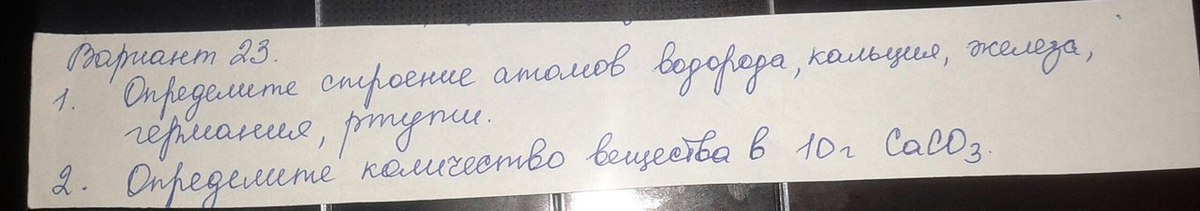 Вариант 23.
1. Определите строение атомов водорода, кальция, железа,
германия, ртути.
2. Определите количество вещества в 10г CaCO3.